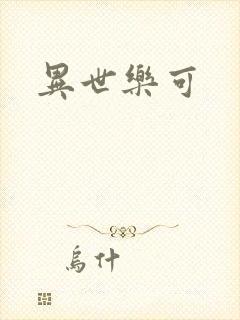 異世樂可
烏什